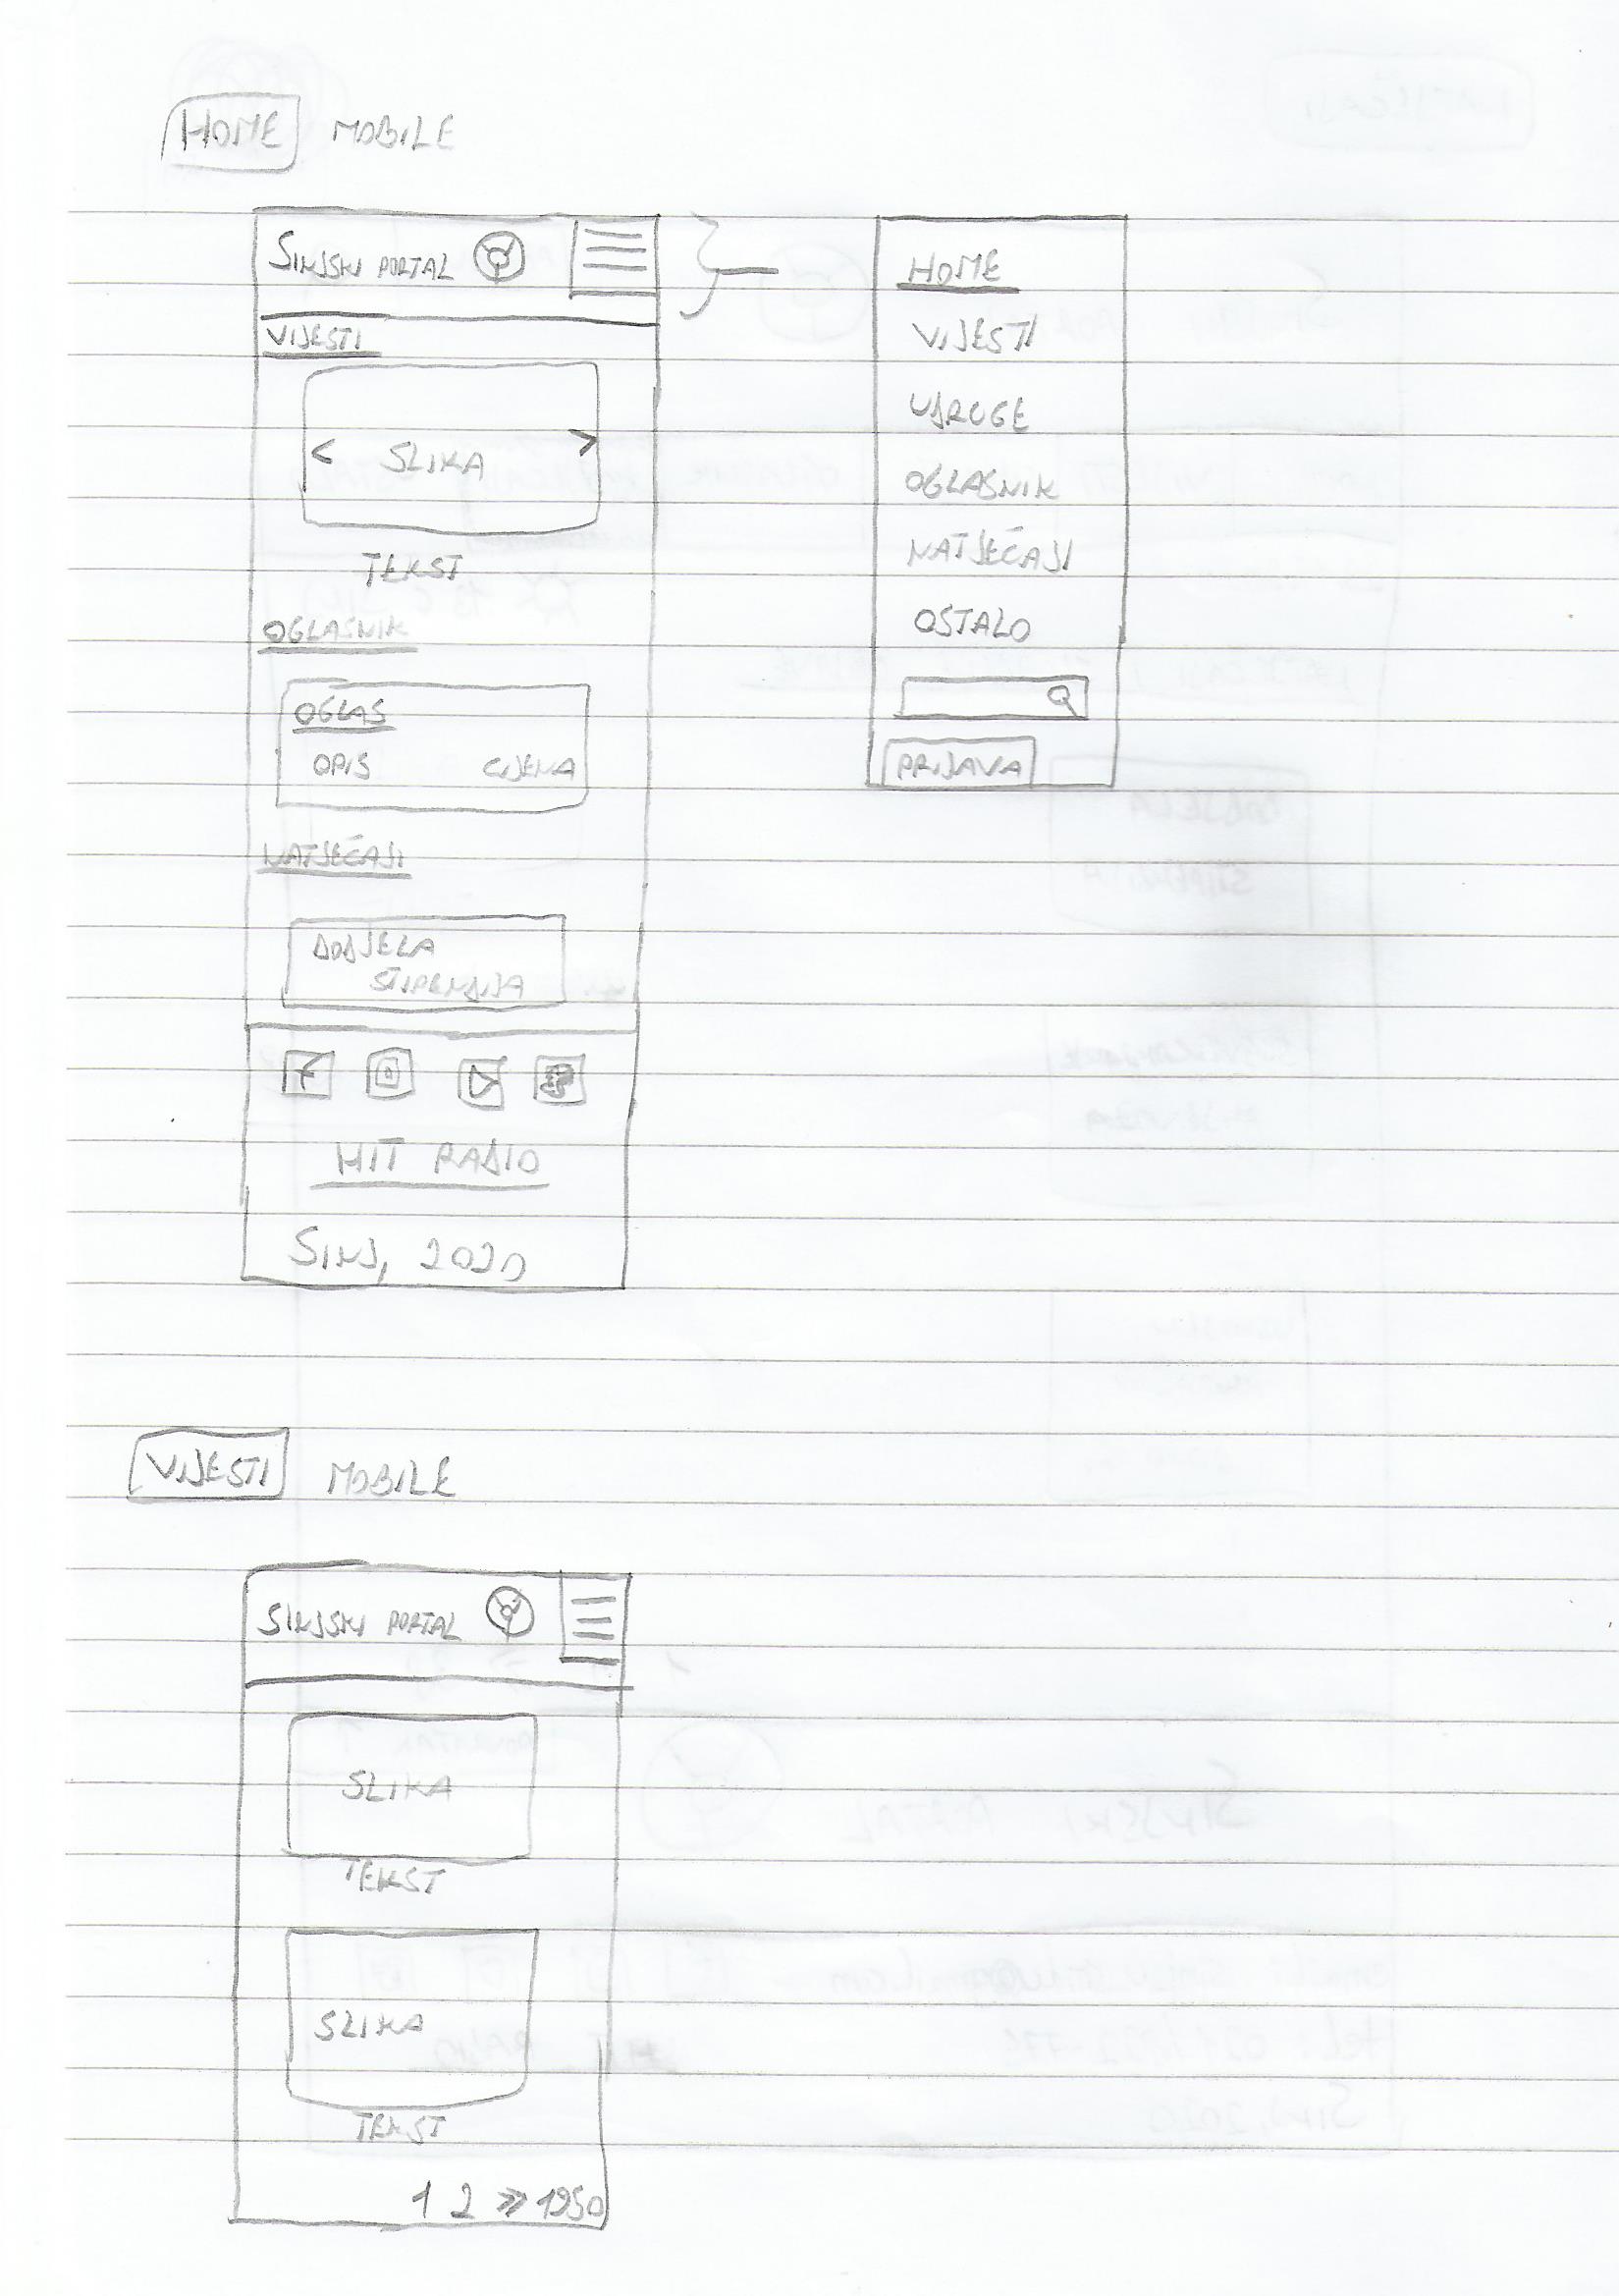 HOME MOBILE
SINJSKI PORTAL
VIJESTI
< SLIKA >
TEKST
OGLASNIK
OGLAS
OPIS CIJENA
NATJEČAJI
DODJELA
STIPENDIJA
HIT RADIO
SINJ, 2020
HOME
VIJESTI
UDRUGE
OGLASNIK
NATJEČAJI
OSTALO
PRIJAVA
VIJESTI MOBILE
SINJSKI PORTAL
SLIKA
TEKST
SLIKA
TEKST
1 2 >> 1950